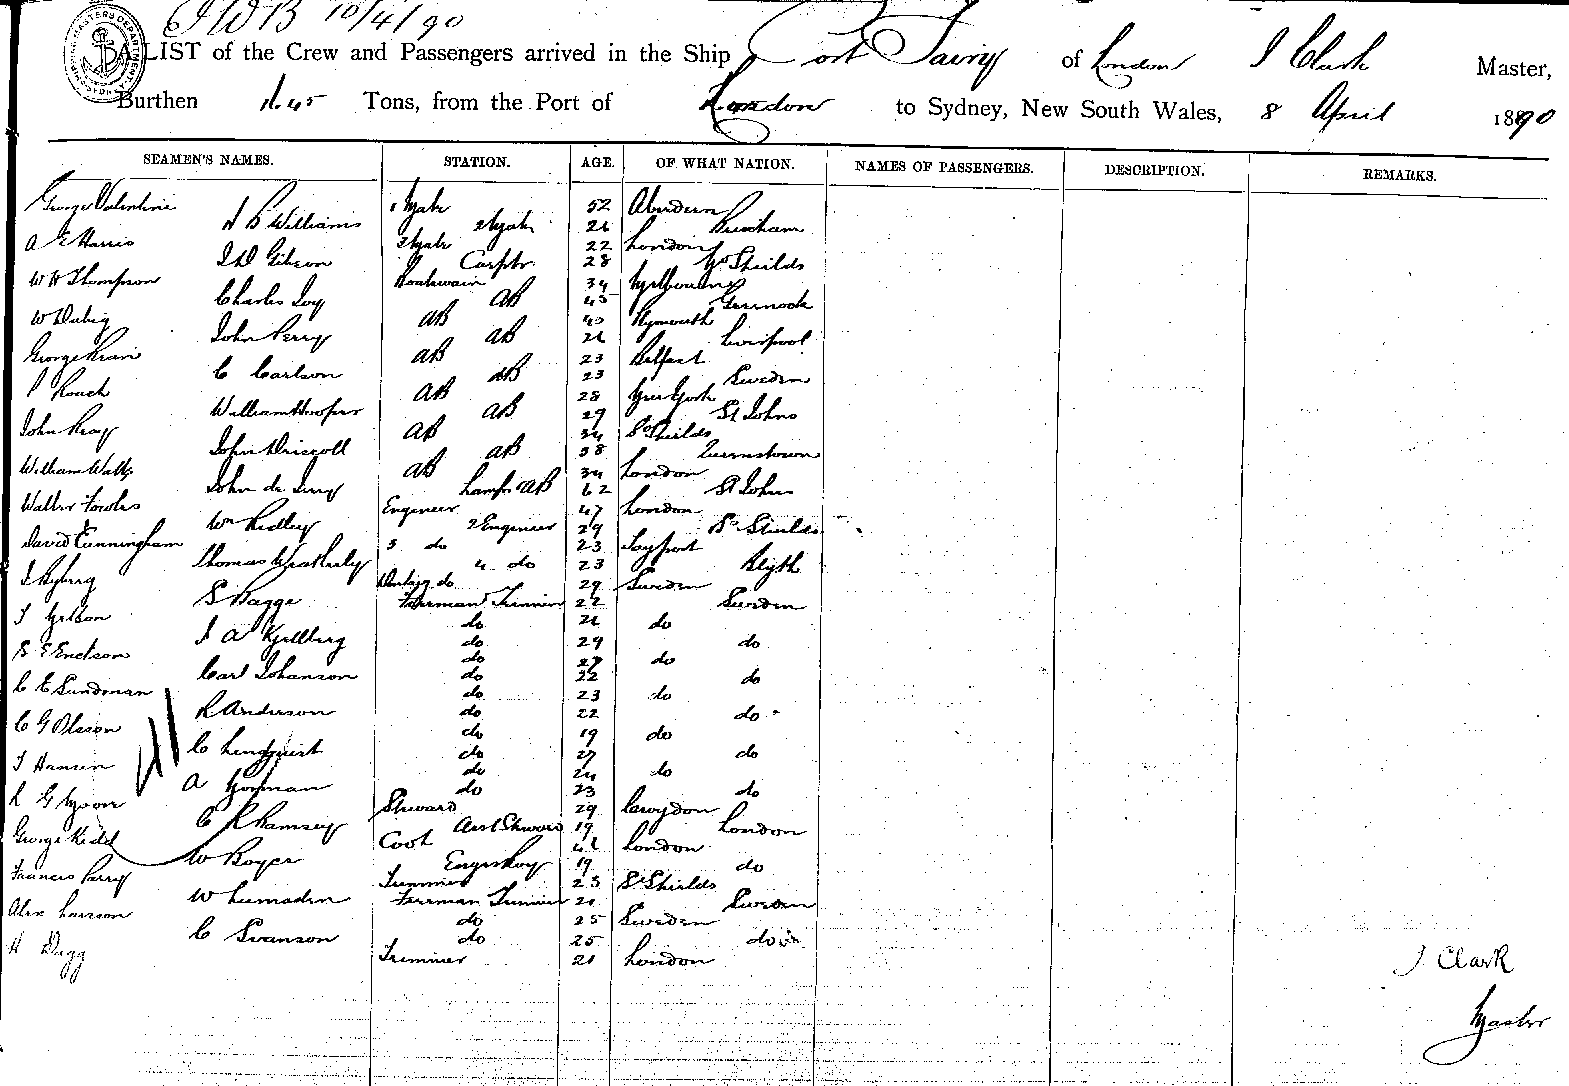 JWB 10/4/90
A LIST of the Crew and Passengers arrived in the Ship Port Fairy of London J Clark Master,
Burthen Tons, from the Port of London to Sydney, New South Wales, 8 April 1890
SEAMEN'S NAMES. STATION. AGE. OF WHAT NATION. NAMES OF PASSENGERS. DESCRIPTION. REMARKS.
George Valentine 1 Mate 52 Aberdeen
B Williams 2 Mate 26 Brixham
A E Harris 3 Mate 22 London
J D Gibson Carptr 28 No Sheilds
W H Thompson Boatswain 34 Melbourne
Charles Joy AB 45 Greenock
W AB 40 Plymouth
John Perry AB 26 Liverpool
George AB 23 Belfast
C Carlson AB 23 Sweden
P Roach AB 28 New York
William Hooper AB 29 St Johns
John AB 34 So Shields
John Driscoll AB 38 Queenstown
William Watts AB 34 London
John de Lamps AB 62 St Johns
Walter Fowles Engineer 47 London
Wm Ridley 2 Engineer 29 So Shields
David Cunningham 3 do 23 Tayport
Thomas Weatherly 4 do 23 Blyth
J Ryberg do 29 Sweden
S Bagge Fireman Trimmer 22 Sweden
J Nelson do 26 do
J A Kjellberg do 29 do
S E Enelson do 27 do
Carl Johanson do 22 do
C E Sundman do 23 do
R Anderson do 22 do
C G Olsson do 19 do
C Lindquist do 27 do
J Hansen do 24 do
A Norman do 23 do
R G Moore Steward 29 Croydon
C R Ramsey Asst Steward 19 London
George Kidd Cook 42 London
W Boyer Engrs boy 19 do
Francis Parry Trimmer 23 So Shields
W Lumsden Fireman Trimmer 21 Sweden
Alex Larsson do 25 Sweden
C Svanson do 25 do
H Dugg Trimmer 21 London
J. Clark
Master